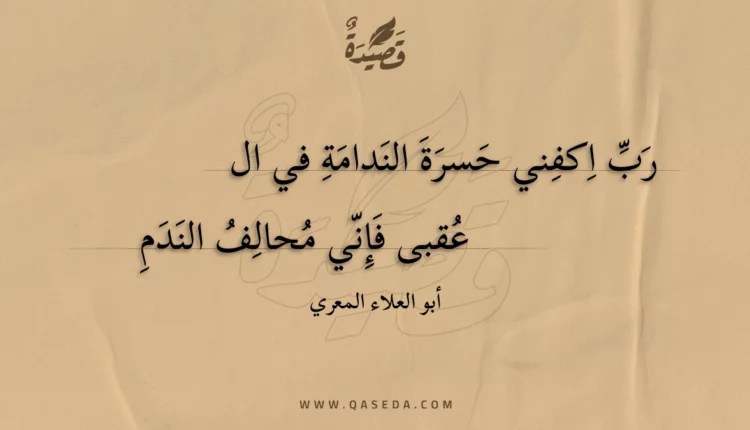 قَصِيْدَةٌ
رَبِّ اِكفِني حَسرَةَ النَدامَةِ في ال
عُقبى فَإِنّي مُحالِفُ النَدَمِ
أبو العلاء المعري
WWW.QASEDA.COM